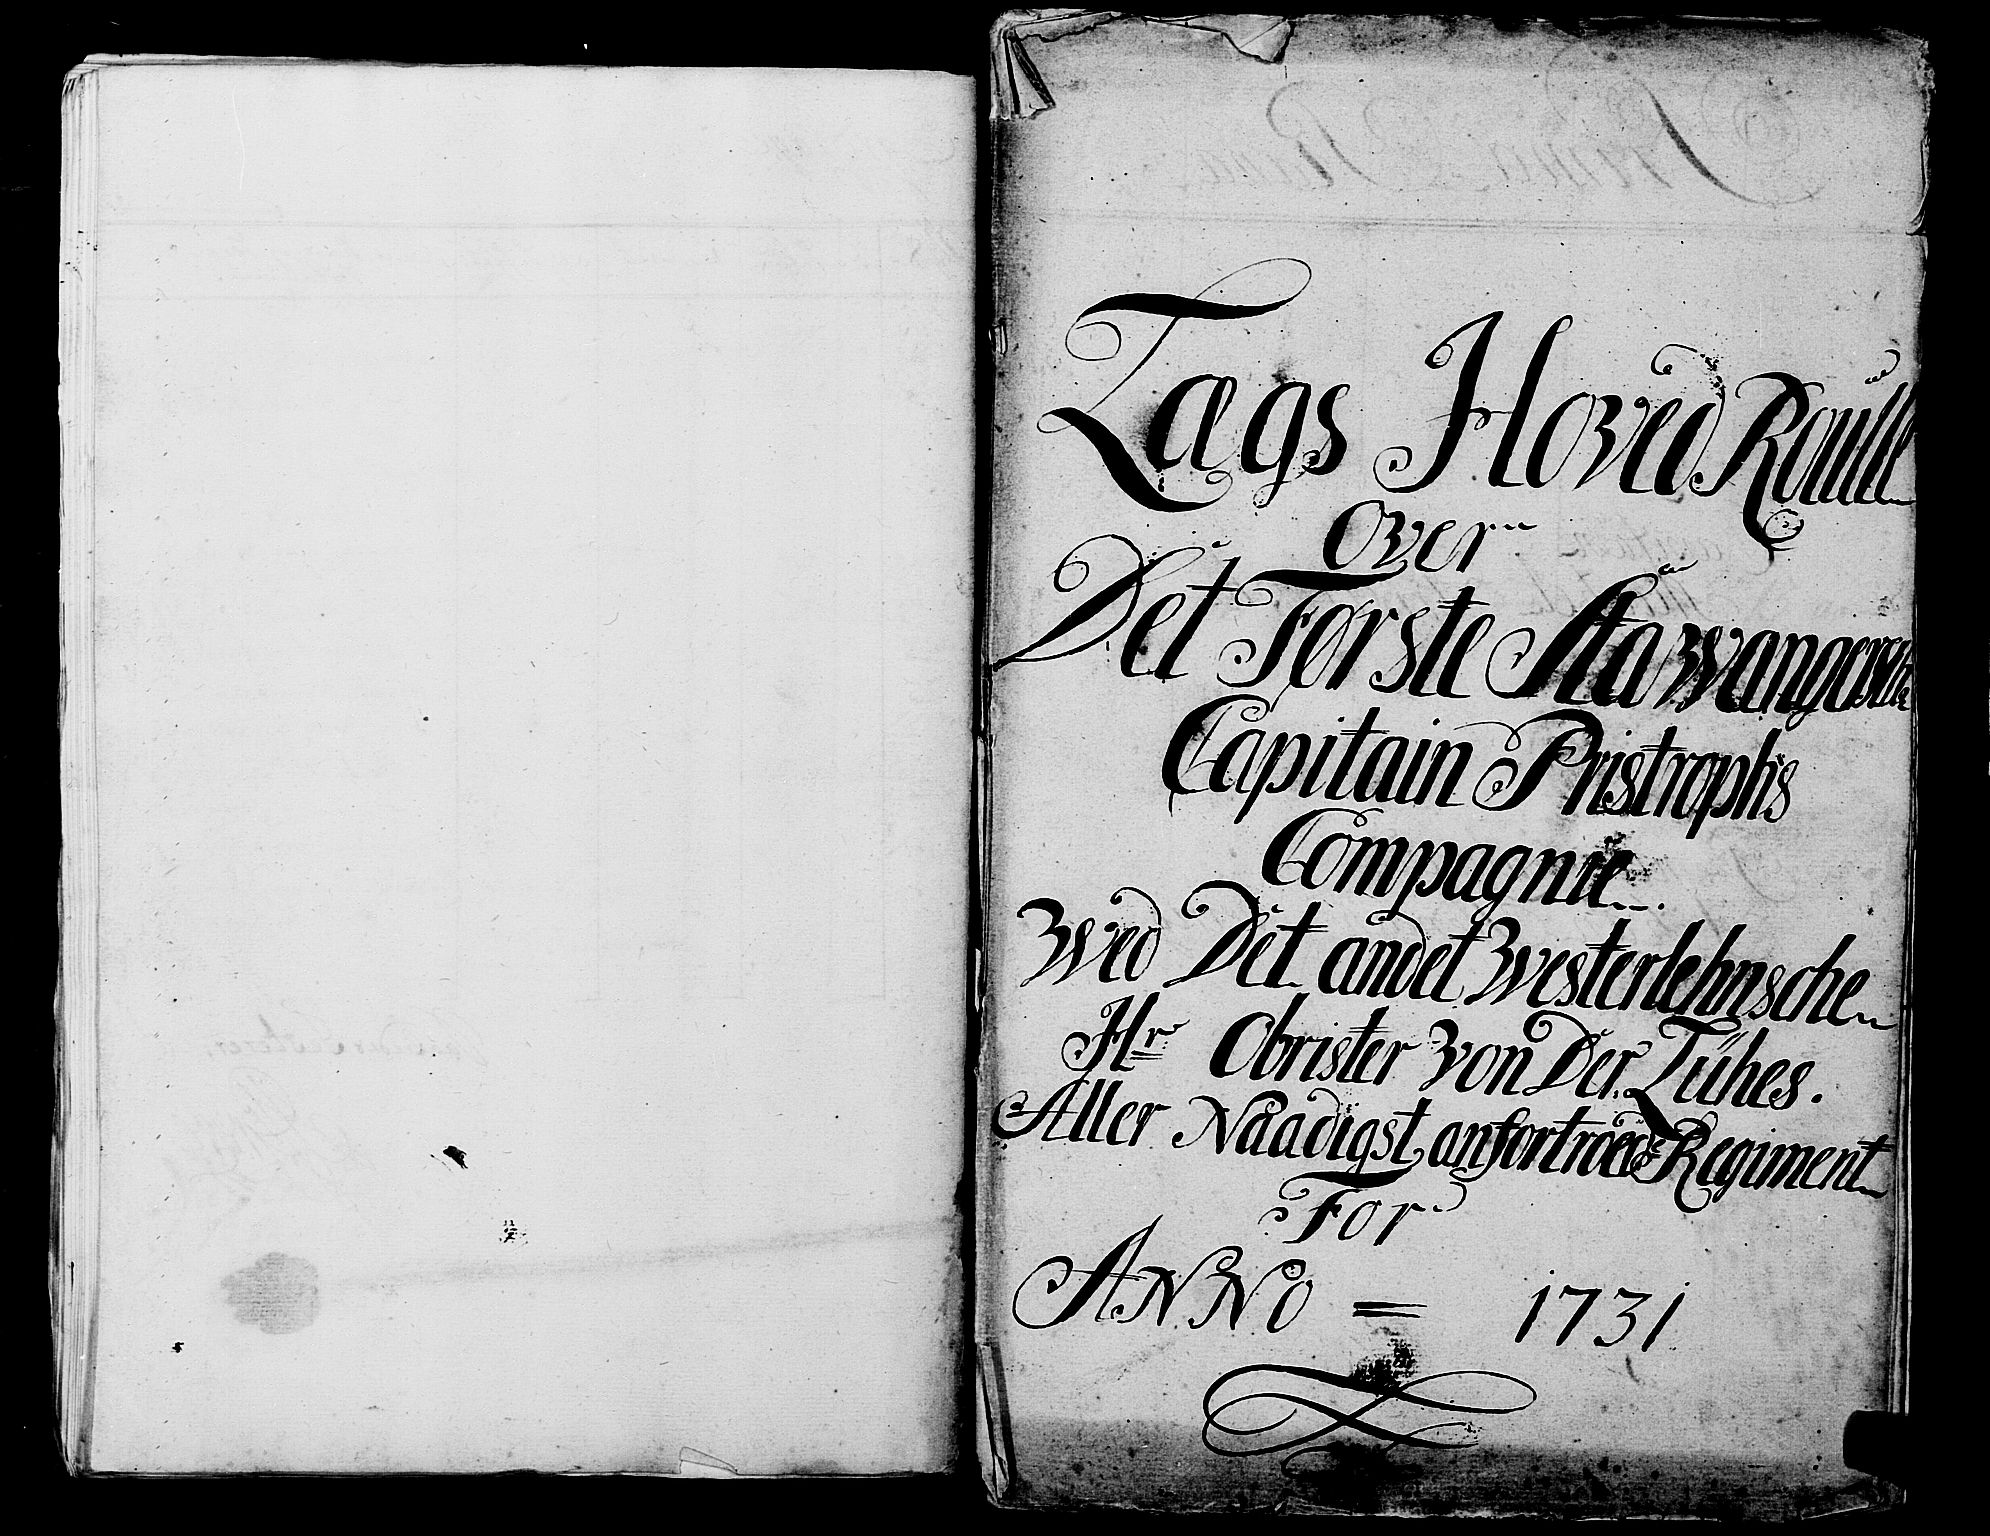 Lægs Hoved Roulle
Over
Det Første Stawangersche
Capitain Pristrophs
Compagnie
Wed Det andet Westerlehnsche
Hr Obrister Von Der Lühes.
Aller Naadigst anfortroede Regiment
For
ANNO = 1731